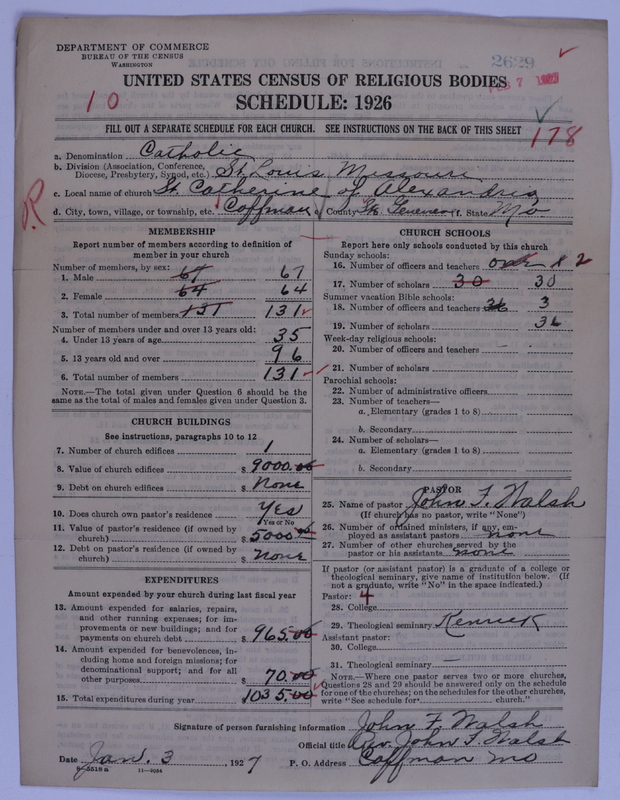 DEPARTMENT OF COMMERCE
BUREAU OF THE CENSUS
WASHINGTON
2629
FEB 7
UNITED STATES CENSUS OF RELIGIOUS BODIES
10
SCHEDULE: 1926
FILL OUT A SEPARATE SCHEDULE FOR EACH CHURCH. SEE INSTRUCTIONS ON THE BACK OF THIS SHEET
178
a. Denomination Catholic
b. Division (Association, Conference, Diocese, Presbytery, Synod, etc.) St. Louis Missouri
c. Local name of church St. Catherine of Alexandria
R
d. City, town, village, or township, etc. Coffman e. County Ste. Genevieve f. State Mo
MEMBERSHIP
Report number of members according to definition of
member in your church
Number of members, by sex:
1. Male 67 67
2. Female 64 64
3. Total number of members 131 131
Number of members under and over 13 years old:
4. Under 13 years of age 35
5. 13 years old and over 96
6. Total number of members 131
NOTE.—The total given under Question 6 should be the
same as the total of males and females given under Question 3.
CHURCH BUILDINGS
See instructions, paragraphs 10 to 12
7. Number of church edifices 1
8. Value of church edifices $ 9000.00
9. Debt on church edifices $ None
10. Does church own pastor's residence Yes
Yes or No
11. Value of pastor's residence (if owned by
church) $ 5000.00
12. Debt on pastor's residence (if owned by
church) $ None
EXPENDITURES
Amount expended by your church during last fiscal year
13. Amount expended for salaries, repairs,
and other running expenses; for im-
provements or new buildings; and for
payments on church debt $ 965.00
14. Amount expended for benevolences, in-
cluding home and foreign missions; for
denominational support; and for all
other purposes $ 70.00
15. Total expenditures during year 1035.00
CHURCH SCHOOLS
Report here only schools conducted by this church
Sunday schools:
16. Number of officers and teachers 2
17. Number of scholars 30 30
Summer vacation Bible schools:
18. Number of officers and teachers 36 3
19. Number of scholars 36
Week-day religious schools:
20. Number of officers and teachers –
21. Number of scholars
Parochial schools:
22. Number of administrative officers
23. Number of teachers—
a. Elementary (grades 1 to 8)
b. Secondary
24. Number of scholars—
a. Elementary (grades 1 to 8)
b. Secondary
PASTOR
25. Name of pastor John F. Walsh
(If church has no pastor, write "None")
26. Number of ordained ministers, if any, em-
ployed as assistant pastors none
27. Number of other churches served by the
pastor or his assistants none
If pastor (or assistant pastor) is a graduate of a college or
theological seminary, give name of institution below. (If
not a graduate, write "No" in the space indicated.)
Pastor: 4
28. College
29. Theological seminary Kenrick
Assistant pastor:
30. College
31. Theological seminary —
NOTE.—Where one pastor serves two or more churches,
Questions 28 and 29 should be answered only on the schedule
for one of the churches; on the schedules for the other churches,
write "See schedule for church."
Signature of person furnishing information John F Walsh
Official title Rev. John F. Walsh
Date Jan. 3, 1927 P. O. Address Coffman Mo
8—5518 a 11—9084